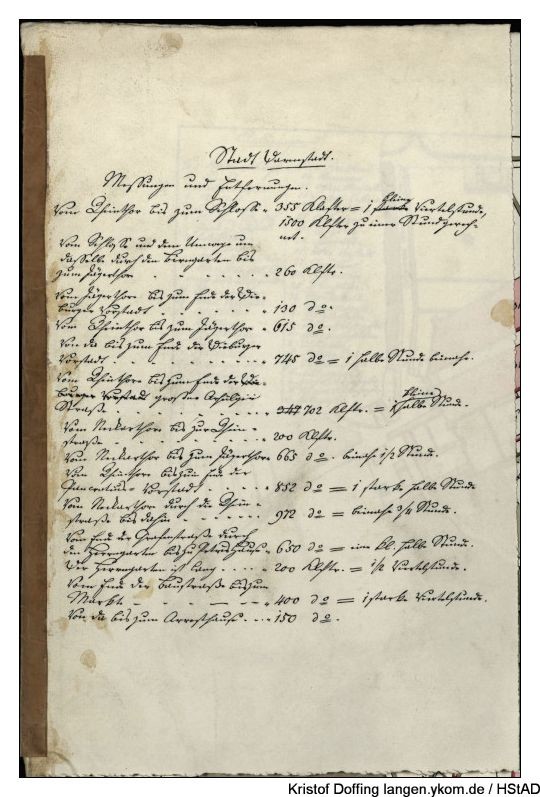 Stadt Darmstadt.
Messungen und Entfernungen.
Vom Rheinthor bis zum Schlosse 355 Klafter = 1 kleine Viertelstunde,
1500 Klfter zu einer Stund gerech-
net.
Vom Schloß und dem Umwege um
dasselbe durch den Birngarten bis
zum Jägerthor - - - - - - 260 Klftr.
Vom Jägerthore bis zum End der Die-
burger Vorstadt - - - - - 130 do.
Vom Rheinthor bis zum Jägerthor - 615 do.
Von da bis zum Ende der Dieburger
Vorstadt - - - - - - 745 do = 1 halbe Stunde beinahe.
Vom Rheinthore bis zum Ende der Die-
burger Vorstadt großen
Straße - - - - - - 702 Klftr. = kleine halbe Stunde.
Vom Neckarthore bis zur Rhein-
straße - - - - - - 200 Klftr.
Vom Neckarthor bis zum Jägerthore 665 do. beinahe 1/2 Stund.
Vom Rheinthore bis zum Ende der
Vorstadt - - - - 852 do = 1 starke halbe Stunde
Vom Neckarthor durch die Rhein-
straße bis dahin - - - - - 972 do = beinahe 3/4 Stunde.
Vom Ende der Grafenstraße durch
den Herrngarten bis 650 do = eine kl. halbe Stund.
Der Herrngarten ist lang - - - 200 Klftr. = 1/2 Viertelstunde.
Vom Ende der Baustraße bis zum
Markte - - - - 400 do = 1 starke Viertelstunde.
Von da bis zum Arresthause - - - 150 do.
Kristof Doffing langen.ykom.de / HStAD